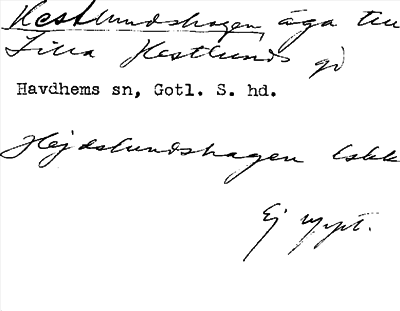 Hestlundshagen, äga till
Lilla Hestlunds gd
Havdhems sn, Gotl. S. hd.
Hejdslundshagen Iskk
Ej uppt.